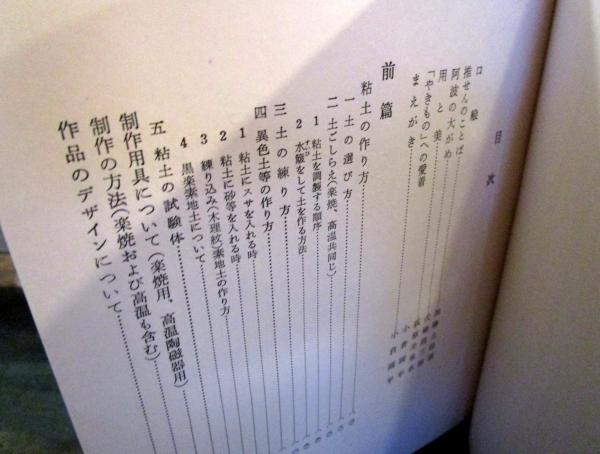 目次
口絵
推せんのことば
阿波の大がめ
用と美
「やきもの」への愛着
まえがき
前篇
粘土の作り方
一 土の選び方
二 土ごしらえ(楽焼、高温共同じ)
1 粘土を調製する順序
2 水簸をして土を作る方法
三 土の練り方
四 異色土等の作り方
1 粘土にスサを入れる時
2 粘土に砂等を入れる時
3 練り込み(木理紋)素地土の作り方
4 黒楽素地土について
五 粘土の試験体
制作用具について(楽焼用、高温陶磁器用)
制作の方法(楽焼および高温も含む)
作品のデザインについて